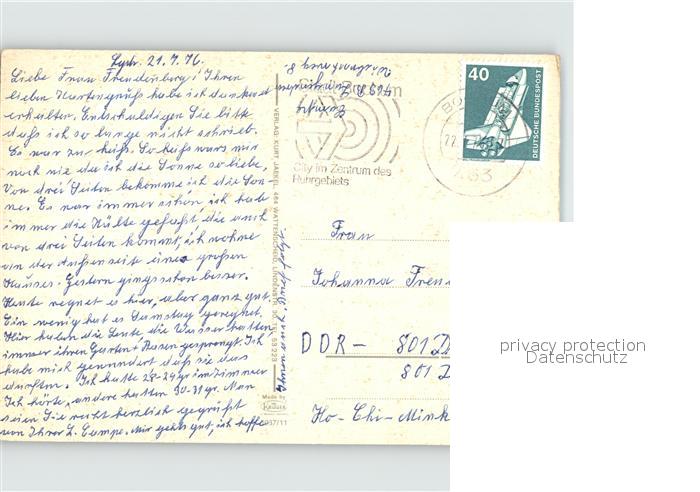 21.7.76.
Liebe Frau Freudenberg! Ihren
lieben Kartengruß habe ich dankend
erhalten. Entschuldigen Sie bitte
daß ich so lange nicht schrieb.
Es war zu heiß. So heiß wars mir
noch nie da ich die Sonne so liebe,
Von drei Seiten bekomme ich die Son-
ne. Es war immer schön, ich hab
immer die Kälte gefaßt die auch
von drei Seiten kommt, ich wohne
an der Außenseite eines großen
Hauses. Gestern gings schon besser.
Heute regnet es hier, aber ganz gut.
Ein wenig hat es Samstag geregnet.
Hier haben die Leute die Wasser hatten
immer ihren Garten + Rasen gesprengt. Ich
habe mich gewundert daß sie das
durften. Ich hatte 28-29 gr im Zimmer
Ich hörte, andere hatten 30-31 gr. Nun
seien Sie recht herzlich gegrüßt
von Ihrer L. Lampe. Mir gehts gut, ich hoffe
VERLAG KURT JAEKEL, 464 WATTENSCHEID, LINDENSTR. 90, TEL. 83 223
Made by
Krüger
937/11
City im Zentrum des
Ruhrgebiets
463
40
DEUTSCHE BUNDESPOST
Frau
Johanna Freu
DDR - 801 D
801 D
Ho-Chi-Mink
privacy protection
Datenschutz